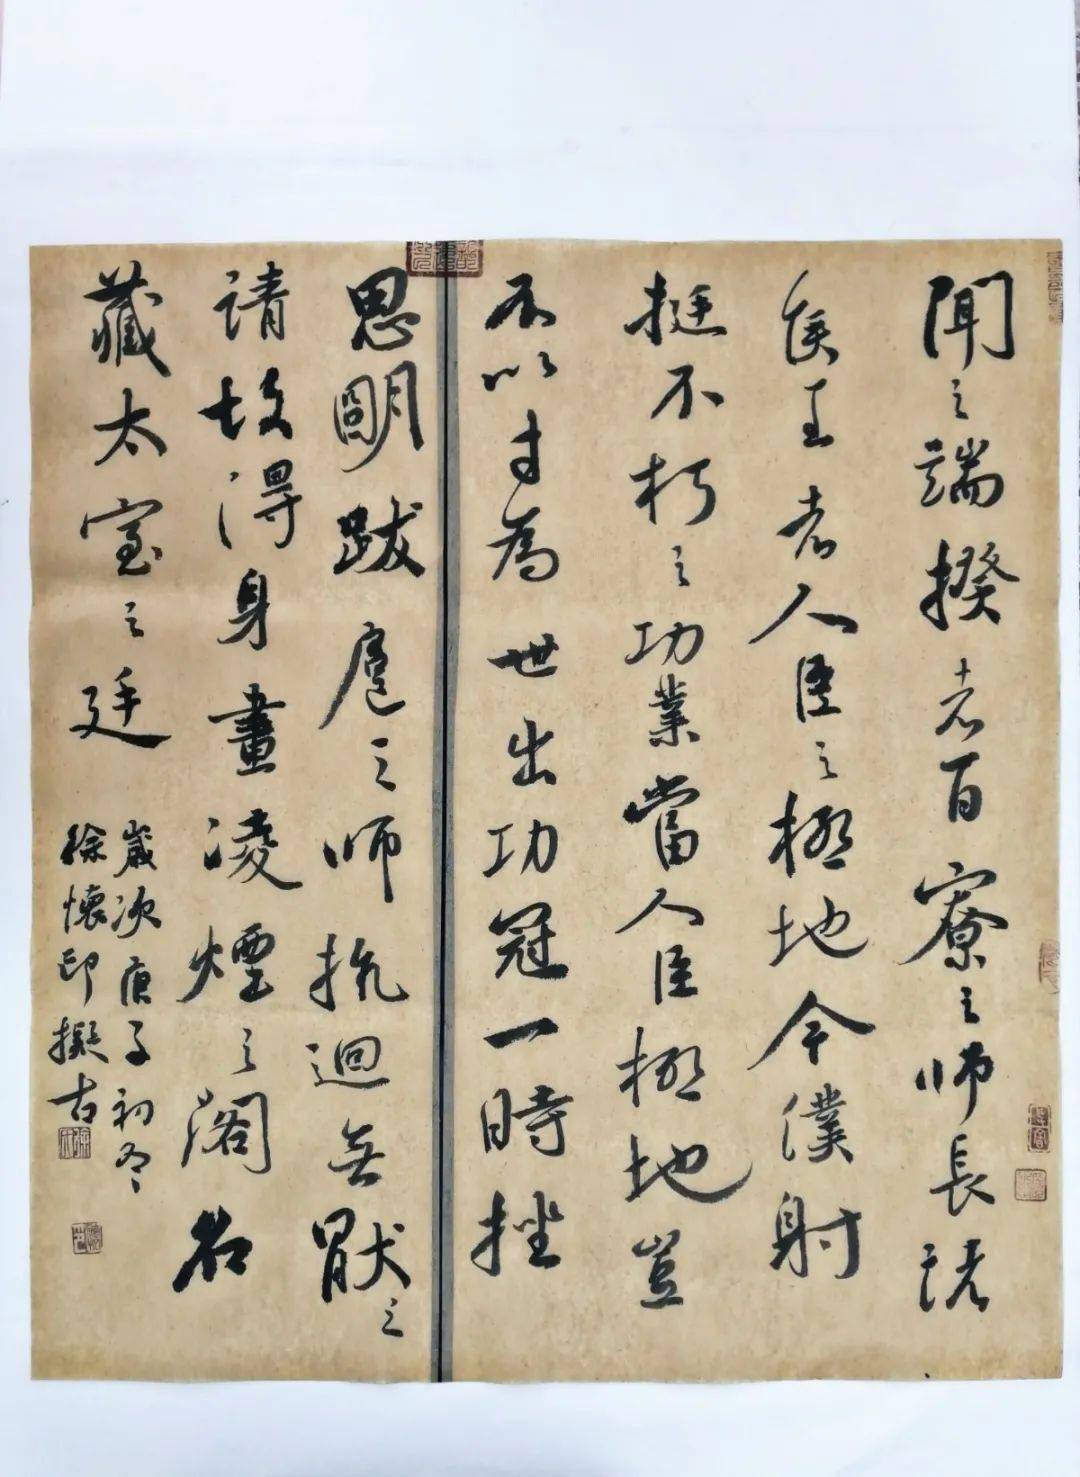 聞之端揆者百寮之師長諸
侯王者人臣之極地今僕射
挺不朽之功業當人臣極地豈
不以才為世出功冠一時挫
思明跋扈之師抗迴無猒之
請故得身畫凌煙之閣名
藏太室之廷
歲次庚子初冬
徐懷印擬古